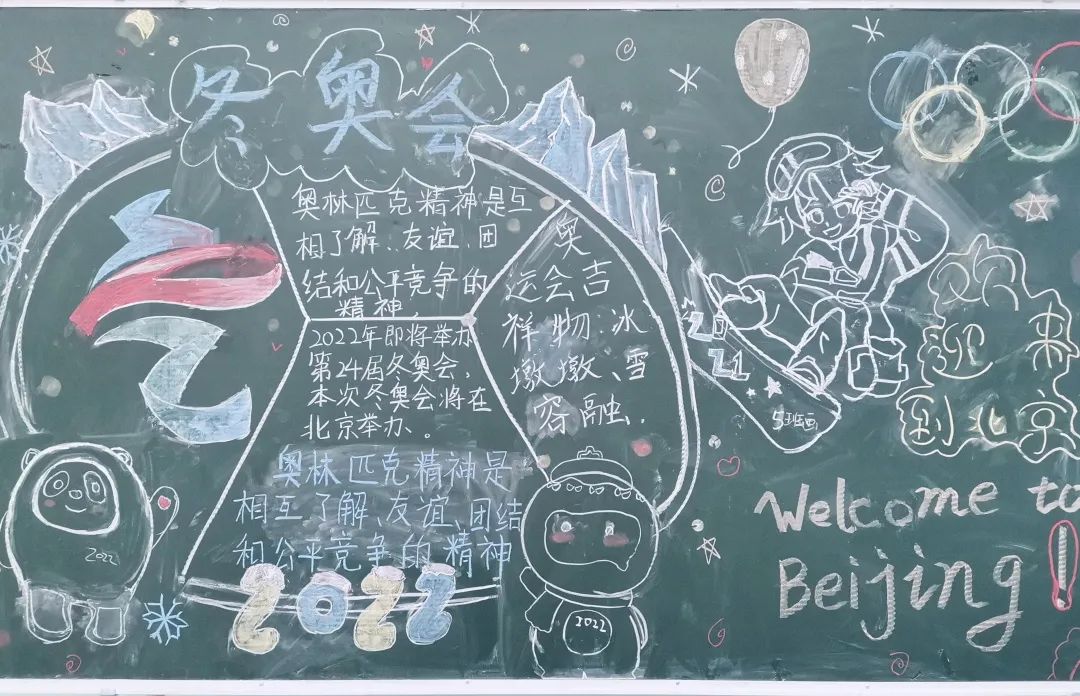 冬奥会
奥林匹克精神是互
相了解、友谊、团
结和公平竞争的
精神。
2022年即将举办
第24届冬奥会，
本次冬奥会将在
北京举办。
奥林匹克精神是
相互了解、友谊、团结
和公平竞争的精神
2022
奥
运会吉
祥物：冰
墩墩、雪
容融.
2022
2022
2021
欢
迎来
到北京
Welcome to
Beijing!